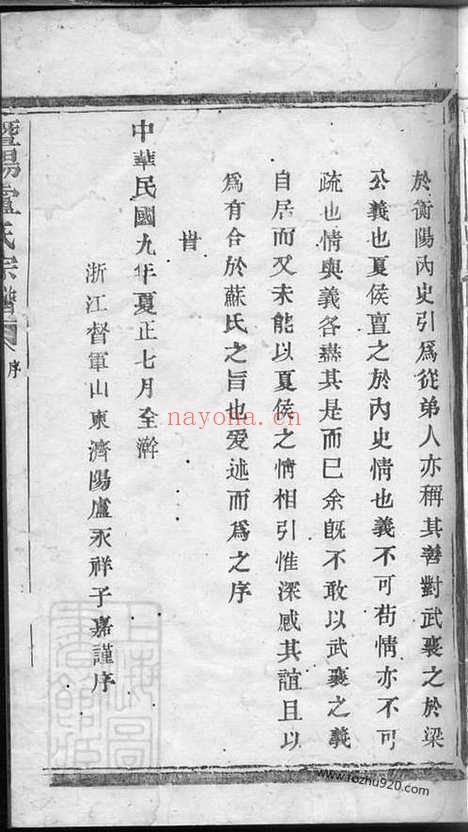 於衡陽內史引爲從弟人亦稱其善對武襄之於梁
公義也夏侯亶之於內史情也義不可苟情亦不可
疏也情與義各燕其是而已余旣不敢以武襄之義
自居而又未能以夏侯之情相引惟深感其誼且以
爲有合於蘇氏之旨也爰述而爲之序
旹
中華民國九年夏正七月全澣
浙江督軍山東濟陽盧永祥子嘉謹序
暨陽盧氏宗譜
序
nayona.cn
www.fozhu920.com
上海圖書館藏